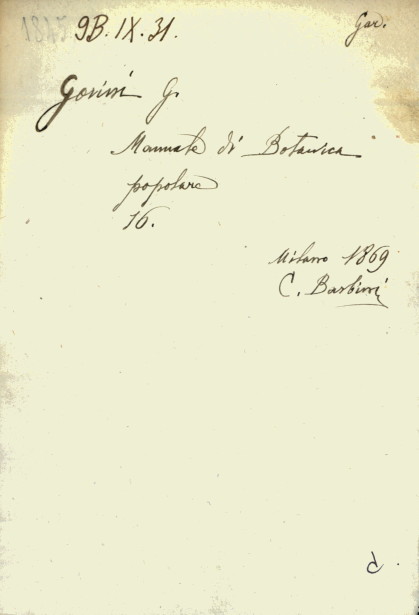 1845 9B. IX. 31. Gar.
Gorini G.
Manuale di Botanica
popolare
16.
Milano 1869
C. Barbini
d.